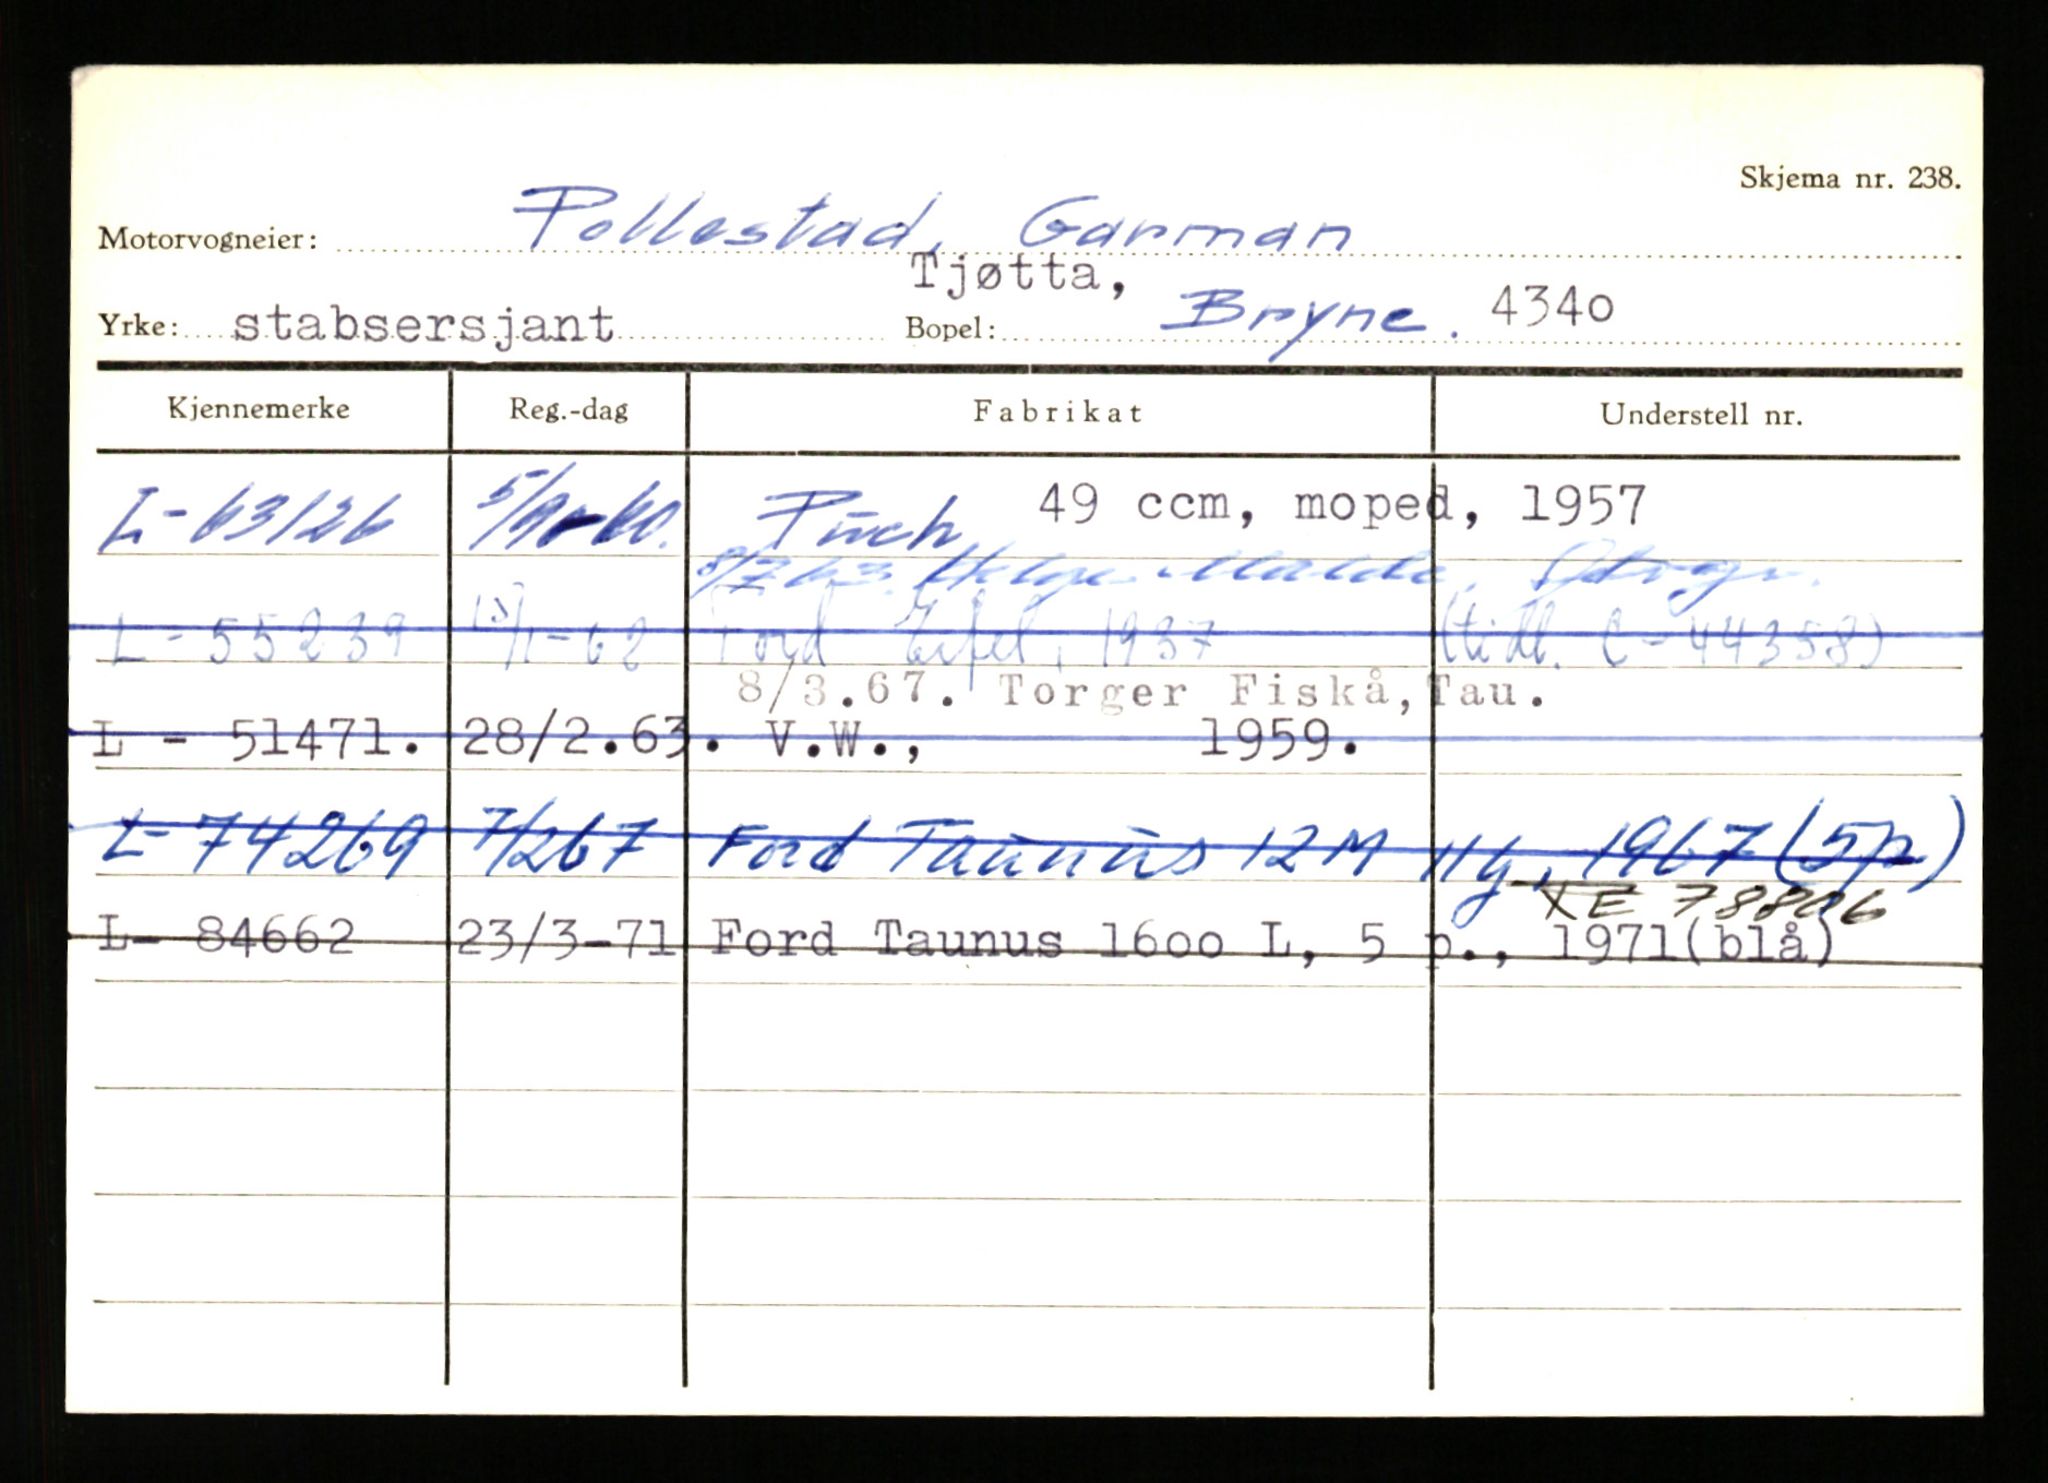 Skjema nr. 238.
Motorvogneier: Pollestad, Garman
Tjøtta,
Yrke: stabsersjant Bopel: Bryne. 4340
Kjennemerke Reg.-dag Fabrikat Understell nr.
L- 63126 5/9-60. Puch 49 ccm, moped, 1957
8/7 63. Helge Malde,
L - 55239 15/1-62 Ford Eifel, 1937 (tidl. C - 44358)
8/3.67. Torger Fiskå, Tau.
L - 51471. 28/2.63. V.W., 1959.
L- 74269 7/2 67 Ford Taunus 12 M 11g, 1967 (5p)
XE 78806
L- 84662 23/3-71 Ford Taunus 1600 L, 5 p., 1971(blå)